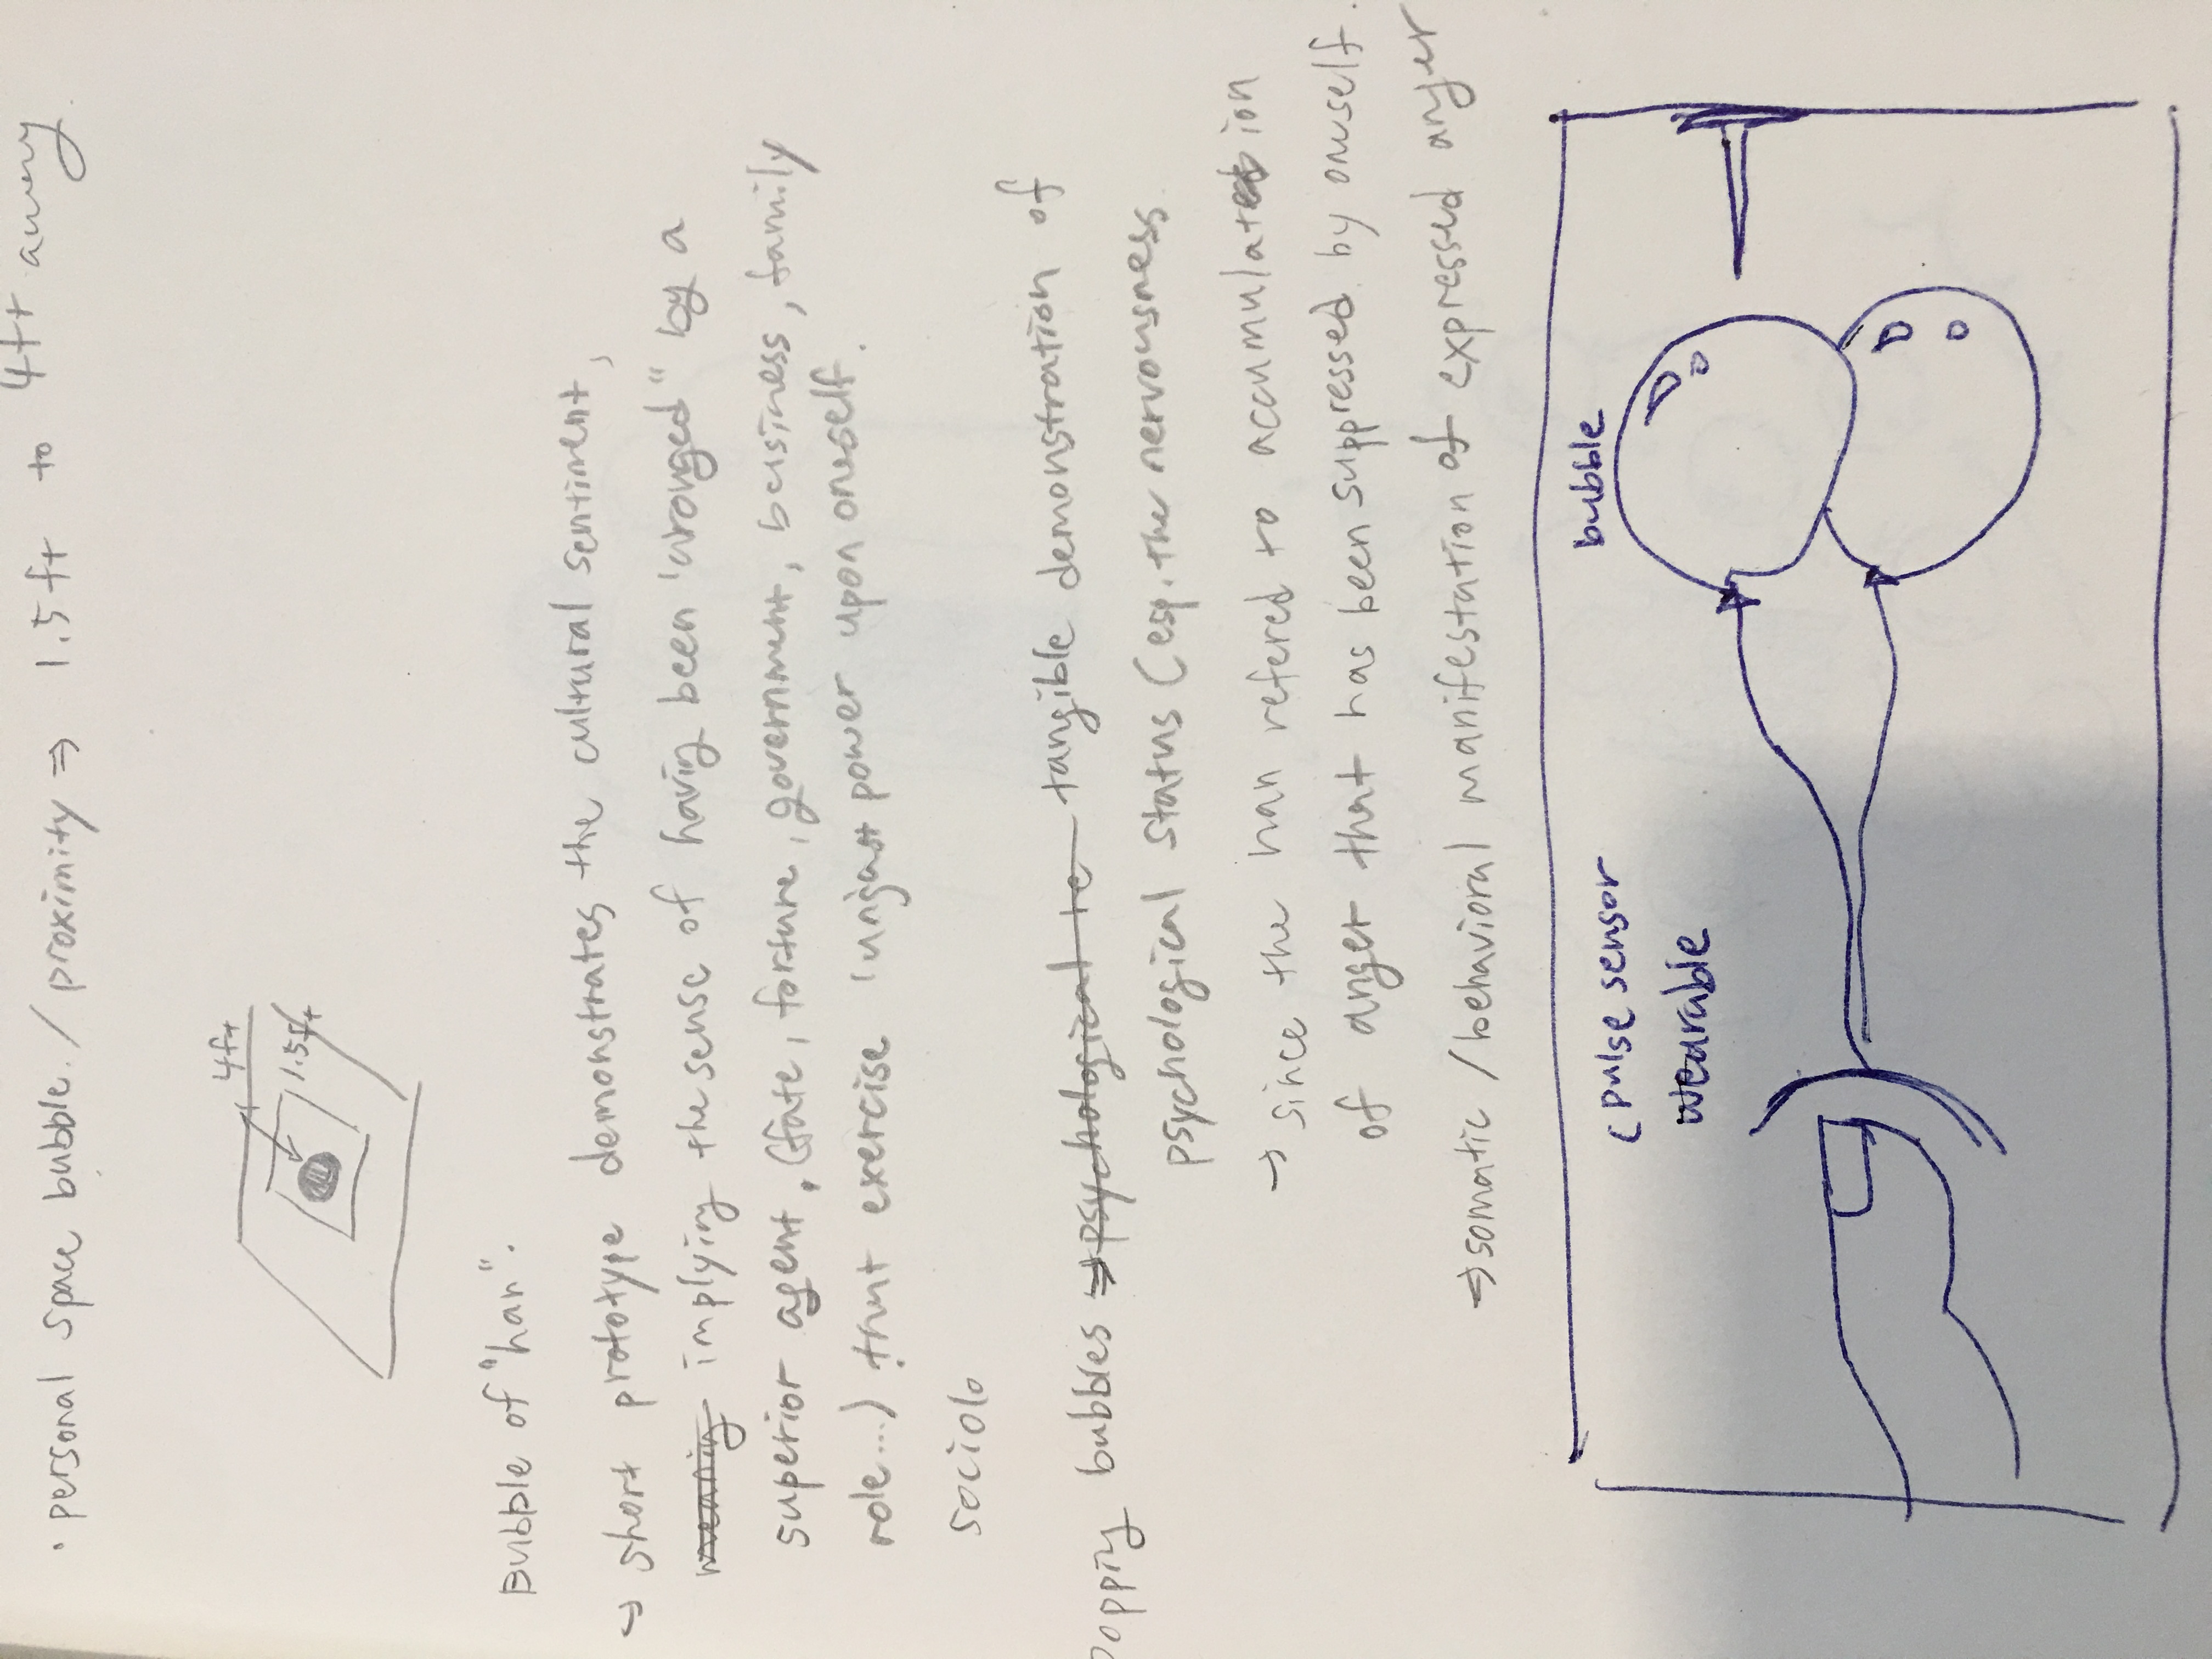 · personal space bubble. / proximity ⇒ 1.5ft to 4ft away.
4ft
1.5ft
Bubble of "han".
→ short prototype demonstrates the cultural sentiment,
meaning implying the sense of having been 'wronged" by a
superior agent, (fate, fortune, government, business, family
role...) that exercise unjust power upon oneself.
sociolo
popping bubbles ⇒ psychological te tangible demonstration of
psychological status (esp. the nervousness
→ since the han refered to accumulation
of anger that has been suppressed by oneself.
⇒ somatic / behavioral manifestation of expressed anger
bubble
( pulse sensor
wearable